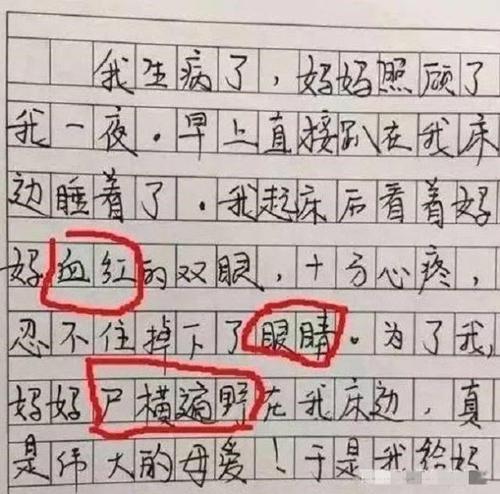 我生病了，妈妈照顾了
我一夜．早上直接趴在我床
边睡着了．我起床后看着妈
妈血红的双眼，十分心疼，
忍不住掉下了眼睛．为了我，
妈妈尸横遍野在我床边，真
是伟大的母爱！于是我给妈